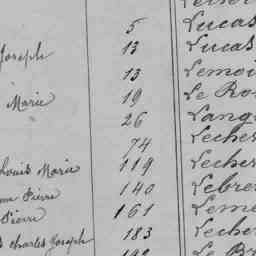 5 Lucas
Joseph 13 Lucas
13 Lemoi
Marie 19 Le Ro
26 Lang
74 Leches
Louis Marie 119 Lecher
Pierre 140 Lebre
Pierre 161 Leme
charles Joseph 183 Lecher
Le Br